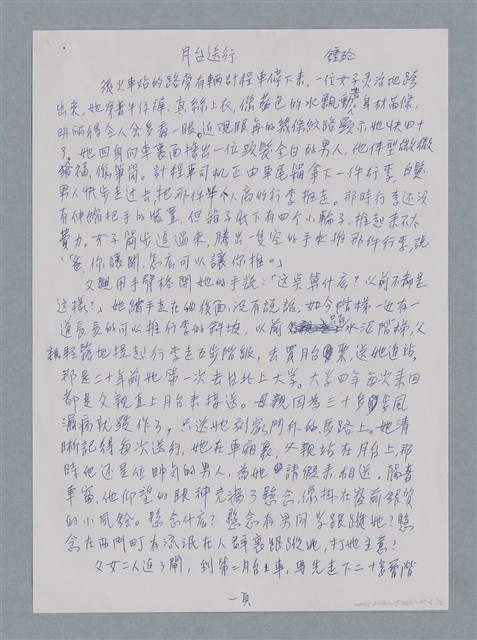 月台送行 鍾玲
後火車站的路旁有輛計程車停下來,一位女子灵活地跨
出來,她穿著牛仔褲,真絲上衣,像藍色的水飄動著,身材苗條,
明丽得令人会多看一眼。近視眼角的幾條紋路顯示她快四十
了。她回身向車裏面攙出一位頭髮全白的男人,他体型微微
發福,像軍閥。計程車司机正由車尾箱拿下一件行李,白髮
男人快步走过去,把那件半人高的行李推走。那時行李还没
有伸縮把手的裝置,但箱子低下有四个小輪子,推起來不太
費力。女子箭步追過來,騰出一隻空的手來推那件行李,說
:「爸,你讓開,怎麼可以讓你推。」
父親用手臂格開她的手說:「这算什麼?以前不都是
这樣?」她踏手走在他後面,没有説話。如今階梯一边有一
道長長的可以推行李的斜坡,以前只有水泥階梯,父
親輕鬆地提起行李走五步階級,去買月台票,送她進站,
那是二十年前她第一次去台北上大学。大学四年每次來回
都是父親直上月台來接送。母親因為三十多歲風
濕病就發作了,只送她到家門外的馬路上。她清
晰記得每次送行,她在車廂裏,父親站在月台上,那
時他还是位帥气的男人,為她請假來相送,隔著
車窗,他仰望的眼神充满了懸念,像掛在窗前銀質
的小風鈴。懸念什麼?懸念有男同学跟踪她?懸
念在西門町有流氓在人群裏跟蹤她,打她主意?
父女二人進了閘,到第二月台上車,要先走下二十多層階
一頁